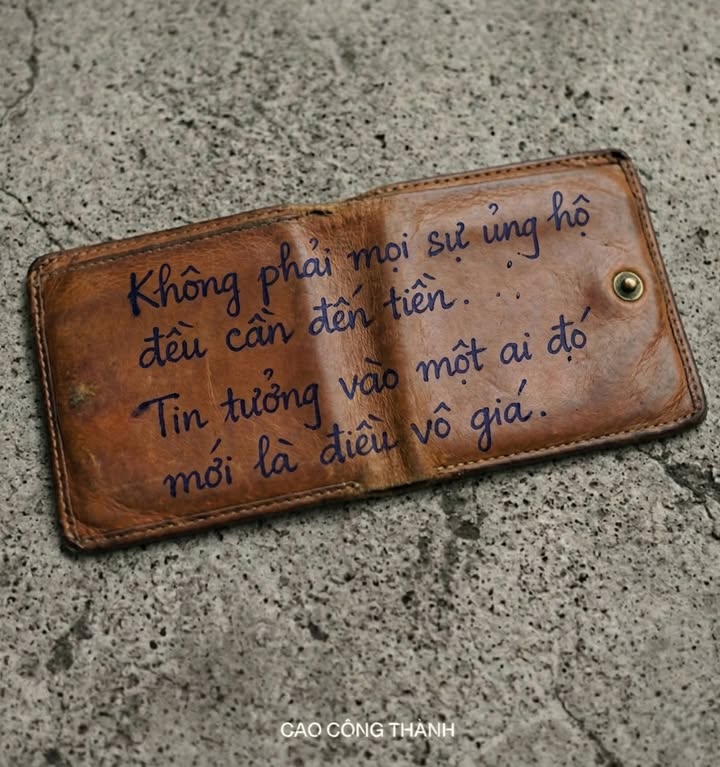 Không phải mọi sự ủng hộ
đều cần đến tiền.
Tin tưởng vào một ai đó
mới là điều vô giá.
CAO CÔNG THÀNH